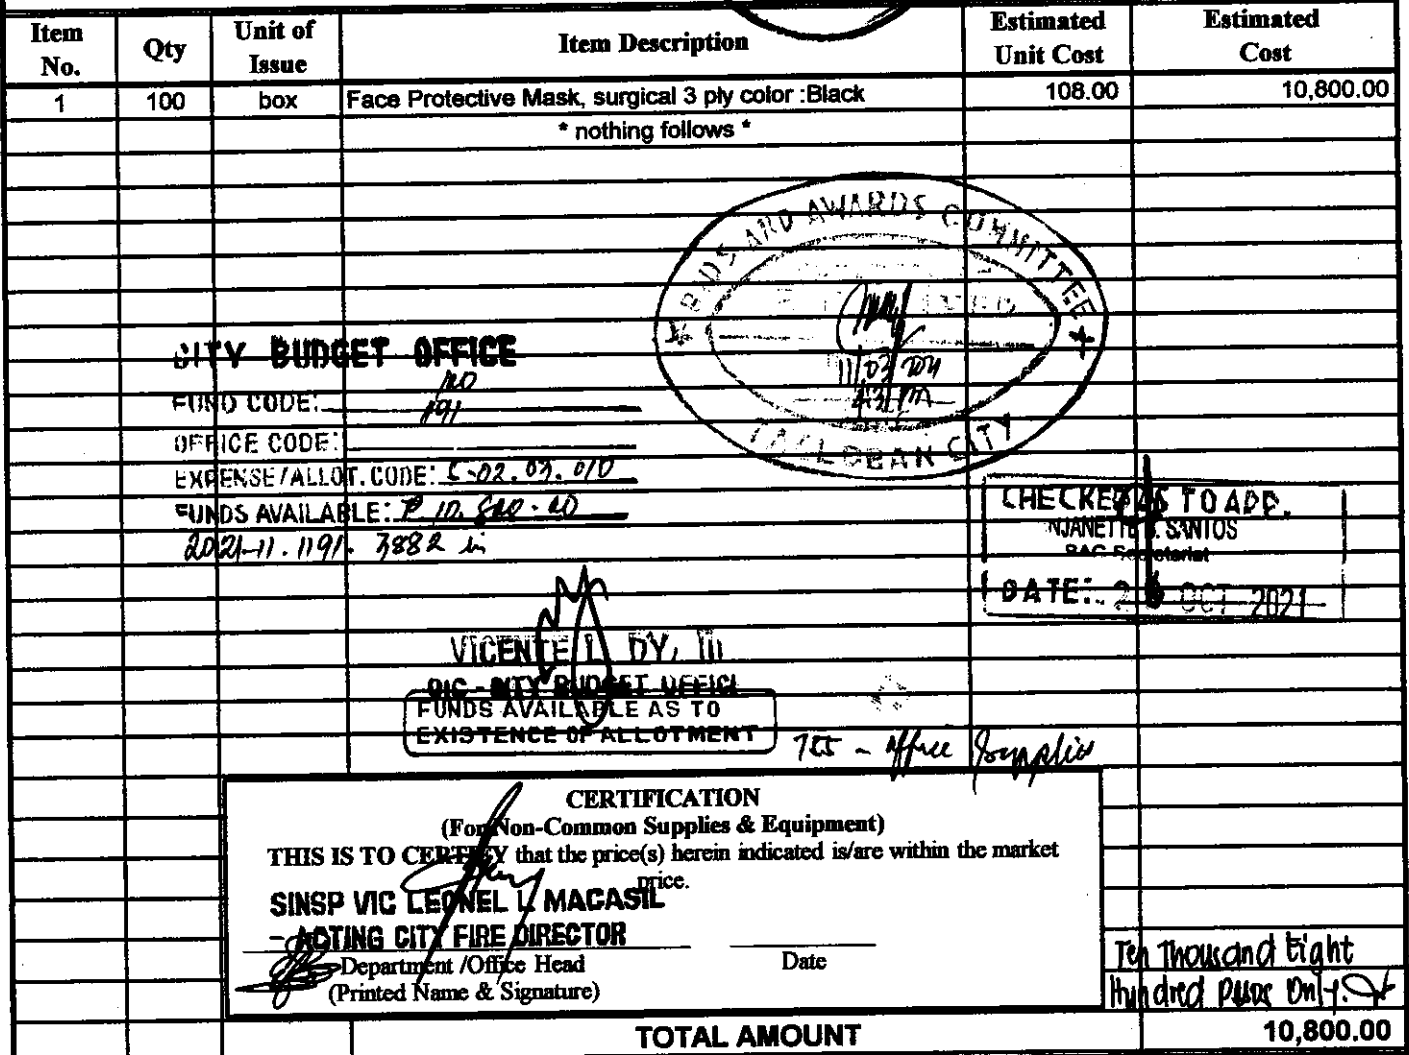 Item No.
Qty
Unit of Issue
Item Description
Estimated Unit Cost
Estimated Cost
1 100 box Face Protective Mask, surgical 3 ply color :Black 108.00 10,800.00
* nothing follows *
BIDS AND AWARDS COMMITTEE
11/03/2021
TACLOBAN CITY
CITY BUDGET OFFICE
FUND CODE:
OFFICE CODE:
EXPENSE/ALLOT. CODE: 5-02.03.010
FUNDS AVAILABLE: P 10,800.00
2021-11.1191. 3882
CHECKED AS TO APP.
SANTOS
BAC Secretariat
DATE: OCT 2021
VICENTE L. DY, III
OIC - CITY BUDGET OFFICE
FUNDS AVAILABLE AS TO
EXISTENCE OF ALLOTMENT
755 - Office Supplies
CERTIFICATION
(For Non-Common Supplies & Equipment)
THIS IS TO CERTIFY that the price(s) herein indicated is/are within the market
price.
SINSP VIC LEONEL L. MACASIL
ACTING CITY FIRE DIRECTOR
Department /Office Head
Date
(Printed Name & Signature)
Ten Thousand Eight
Hundred Only.
TOTAL AMOUNT 10,800.00